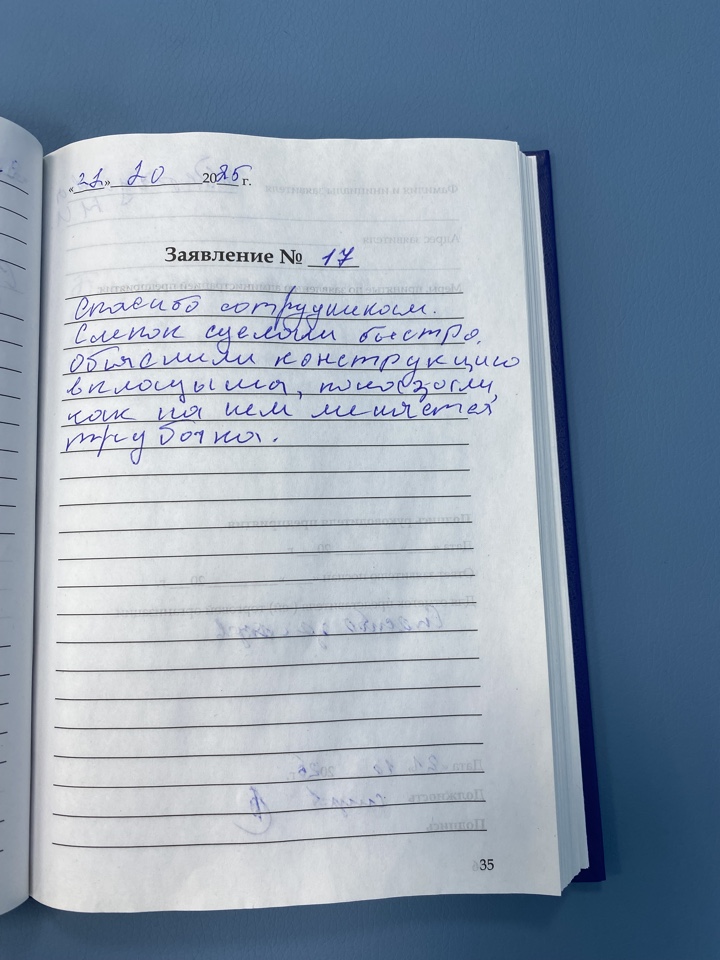 «21» 10 2025 г.
Заявление № 17
Спасибо сотрудникам.
Слепок сделали быстро.
Объяснили конструкцию
вкладыша, показали,
как на нем меняется
трубочка.
35